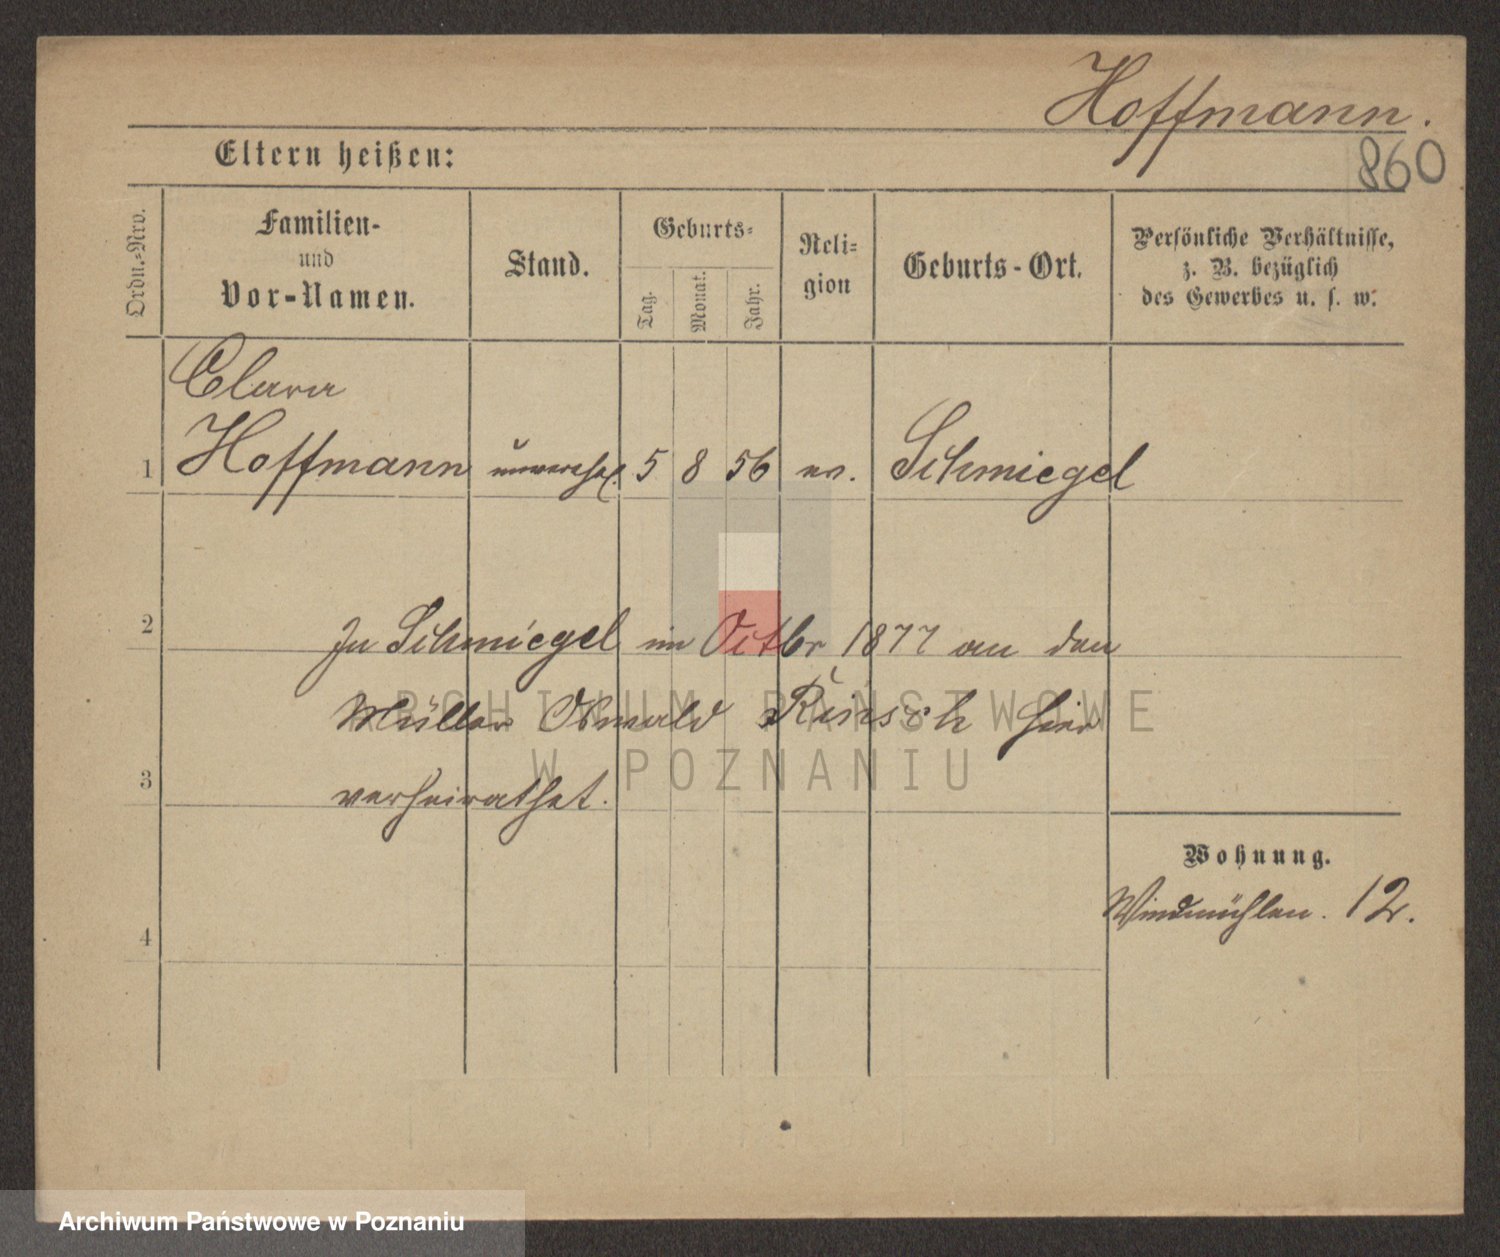 Hoffmann.
860
Eltern heißen:
Ordn.-Nro.
Familien-
und
Vor-Namen.
Stand.
Geburts-
Tag.
Monat.
Jahr.
Reli-
gion
Geburts-Ort.
Persönliche Verhältnisse,
z. B. bezüglich
des Gewerbes u. s. w.
Clara
1 Hoffmann unverehel. 5 8 56 ev. Schmiegel
2
In Schmiegel im Octbr 1877 an den
Müller Oswald Rinsch hier
3
verheirathet.
Wohnung.
Windmühlen. 12.
4
ARCHIWUM PAŃSTWOWE
W POZNANIU
Archiwum Państwowe w Poznaniu